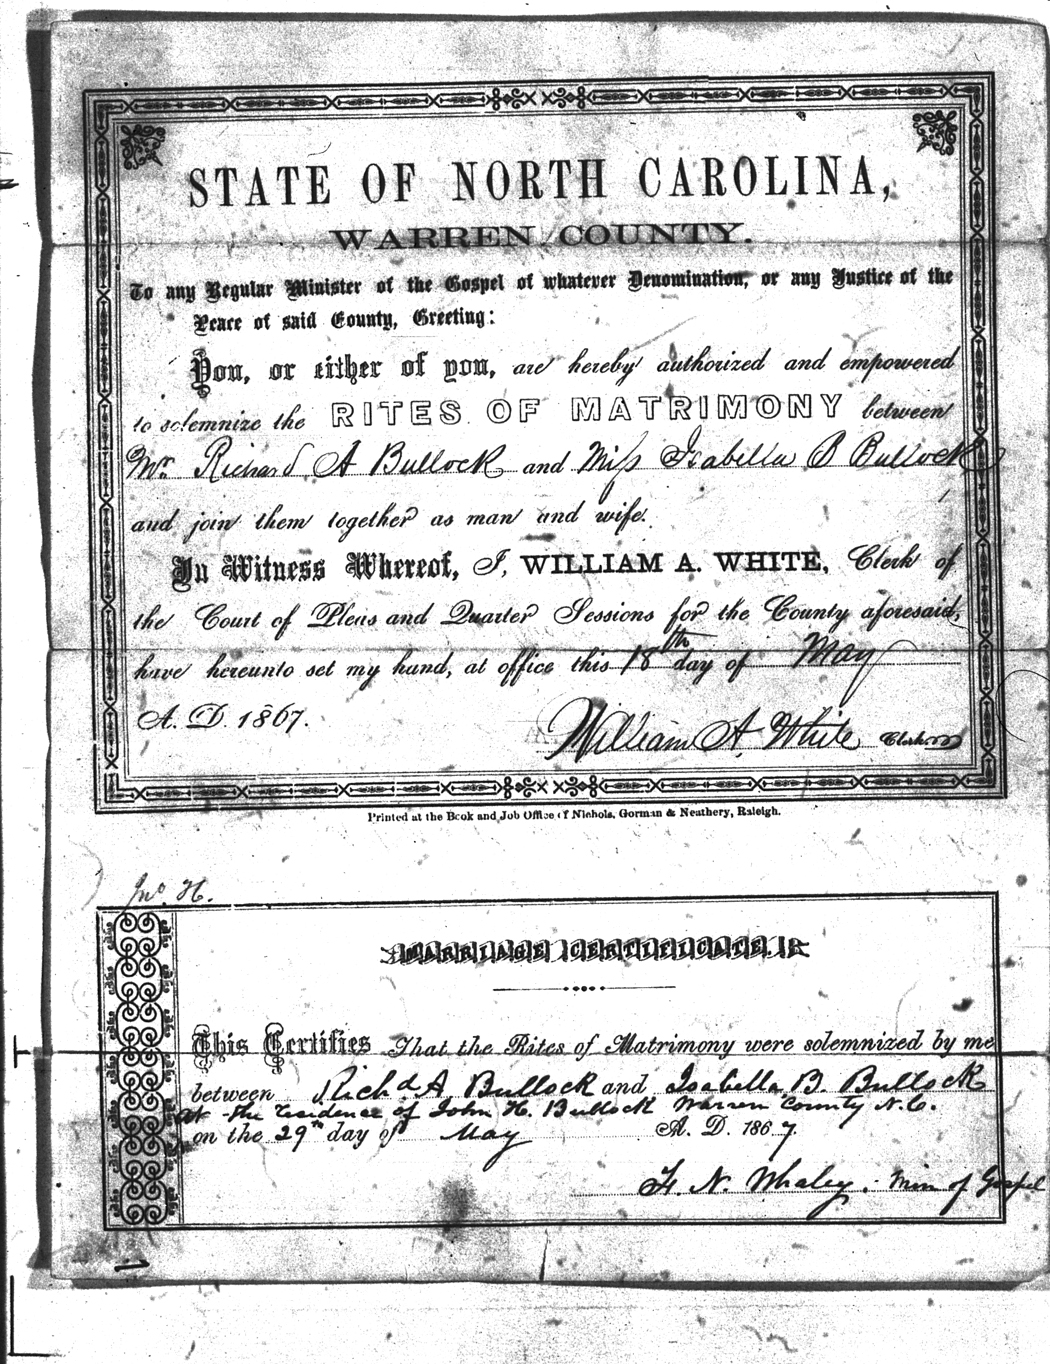 STATE OF NORTH CAROLINA,
WARREN COUNTY.
To any Regular Minister of the Gospel of whatever Denomination, or any Justice of the
Peace of said County, Greeting:
You, or either of you, are hereby authorized and empowered
to solemnize the RITES OF MATRIMONY between
Mr. Richard A Bullock and Miss Isabella B Bullock
and join them together as man and wife.
In Witness Whereof, I, WILLIAM A. WHITE, Clerk of
the Court of Pleas and Quarter Sessions for the County aforesaid,
have hereunto set my hand, at office this 18th day of May
A. D. 1867.
William A. White Clerk
Printed at the Book and Job Office of Nichols, Gorman & Neathery, Raleigh.
Jno. H.
MARRIAGE CERTIFICATE.
This Certifies That the Rites of Matrimony were solemnized by me
between Richd A Bullock and Isabella B. Bullock
at the residence of John H. Bullock Warren County N.C.
on the 29th day of May A. D. 1867.
F. N. Whaley, Min of Gospel